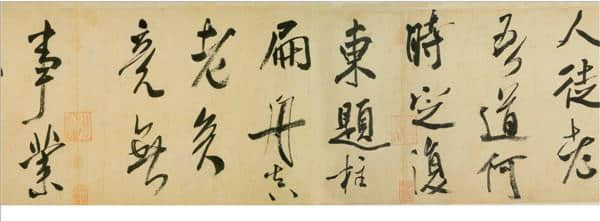 人徒老
吾道何
時定復
東題柱
扁舟真
老矣
竟無
事業